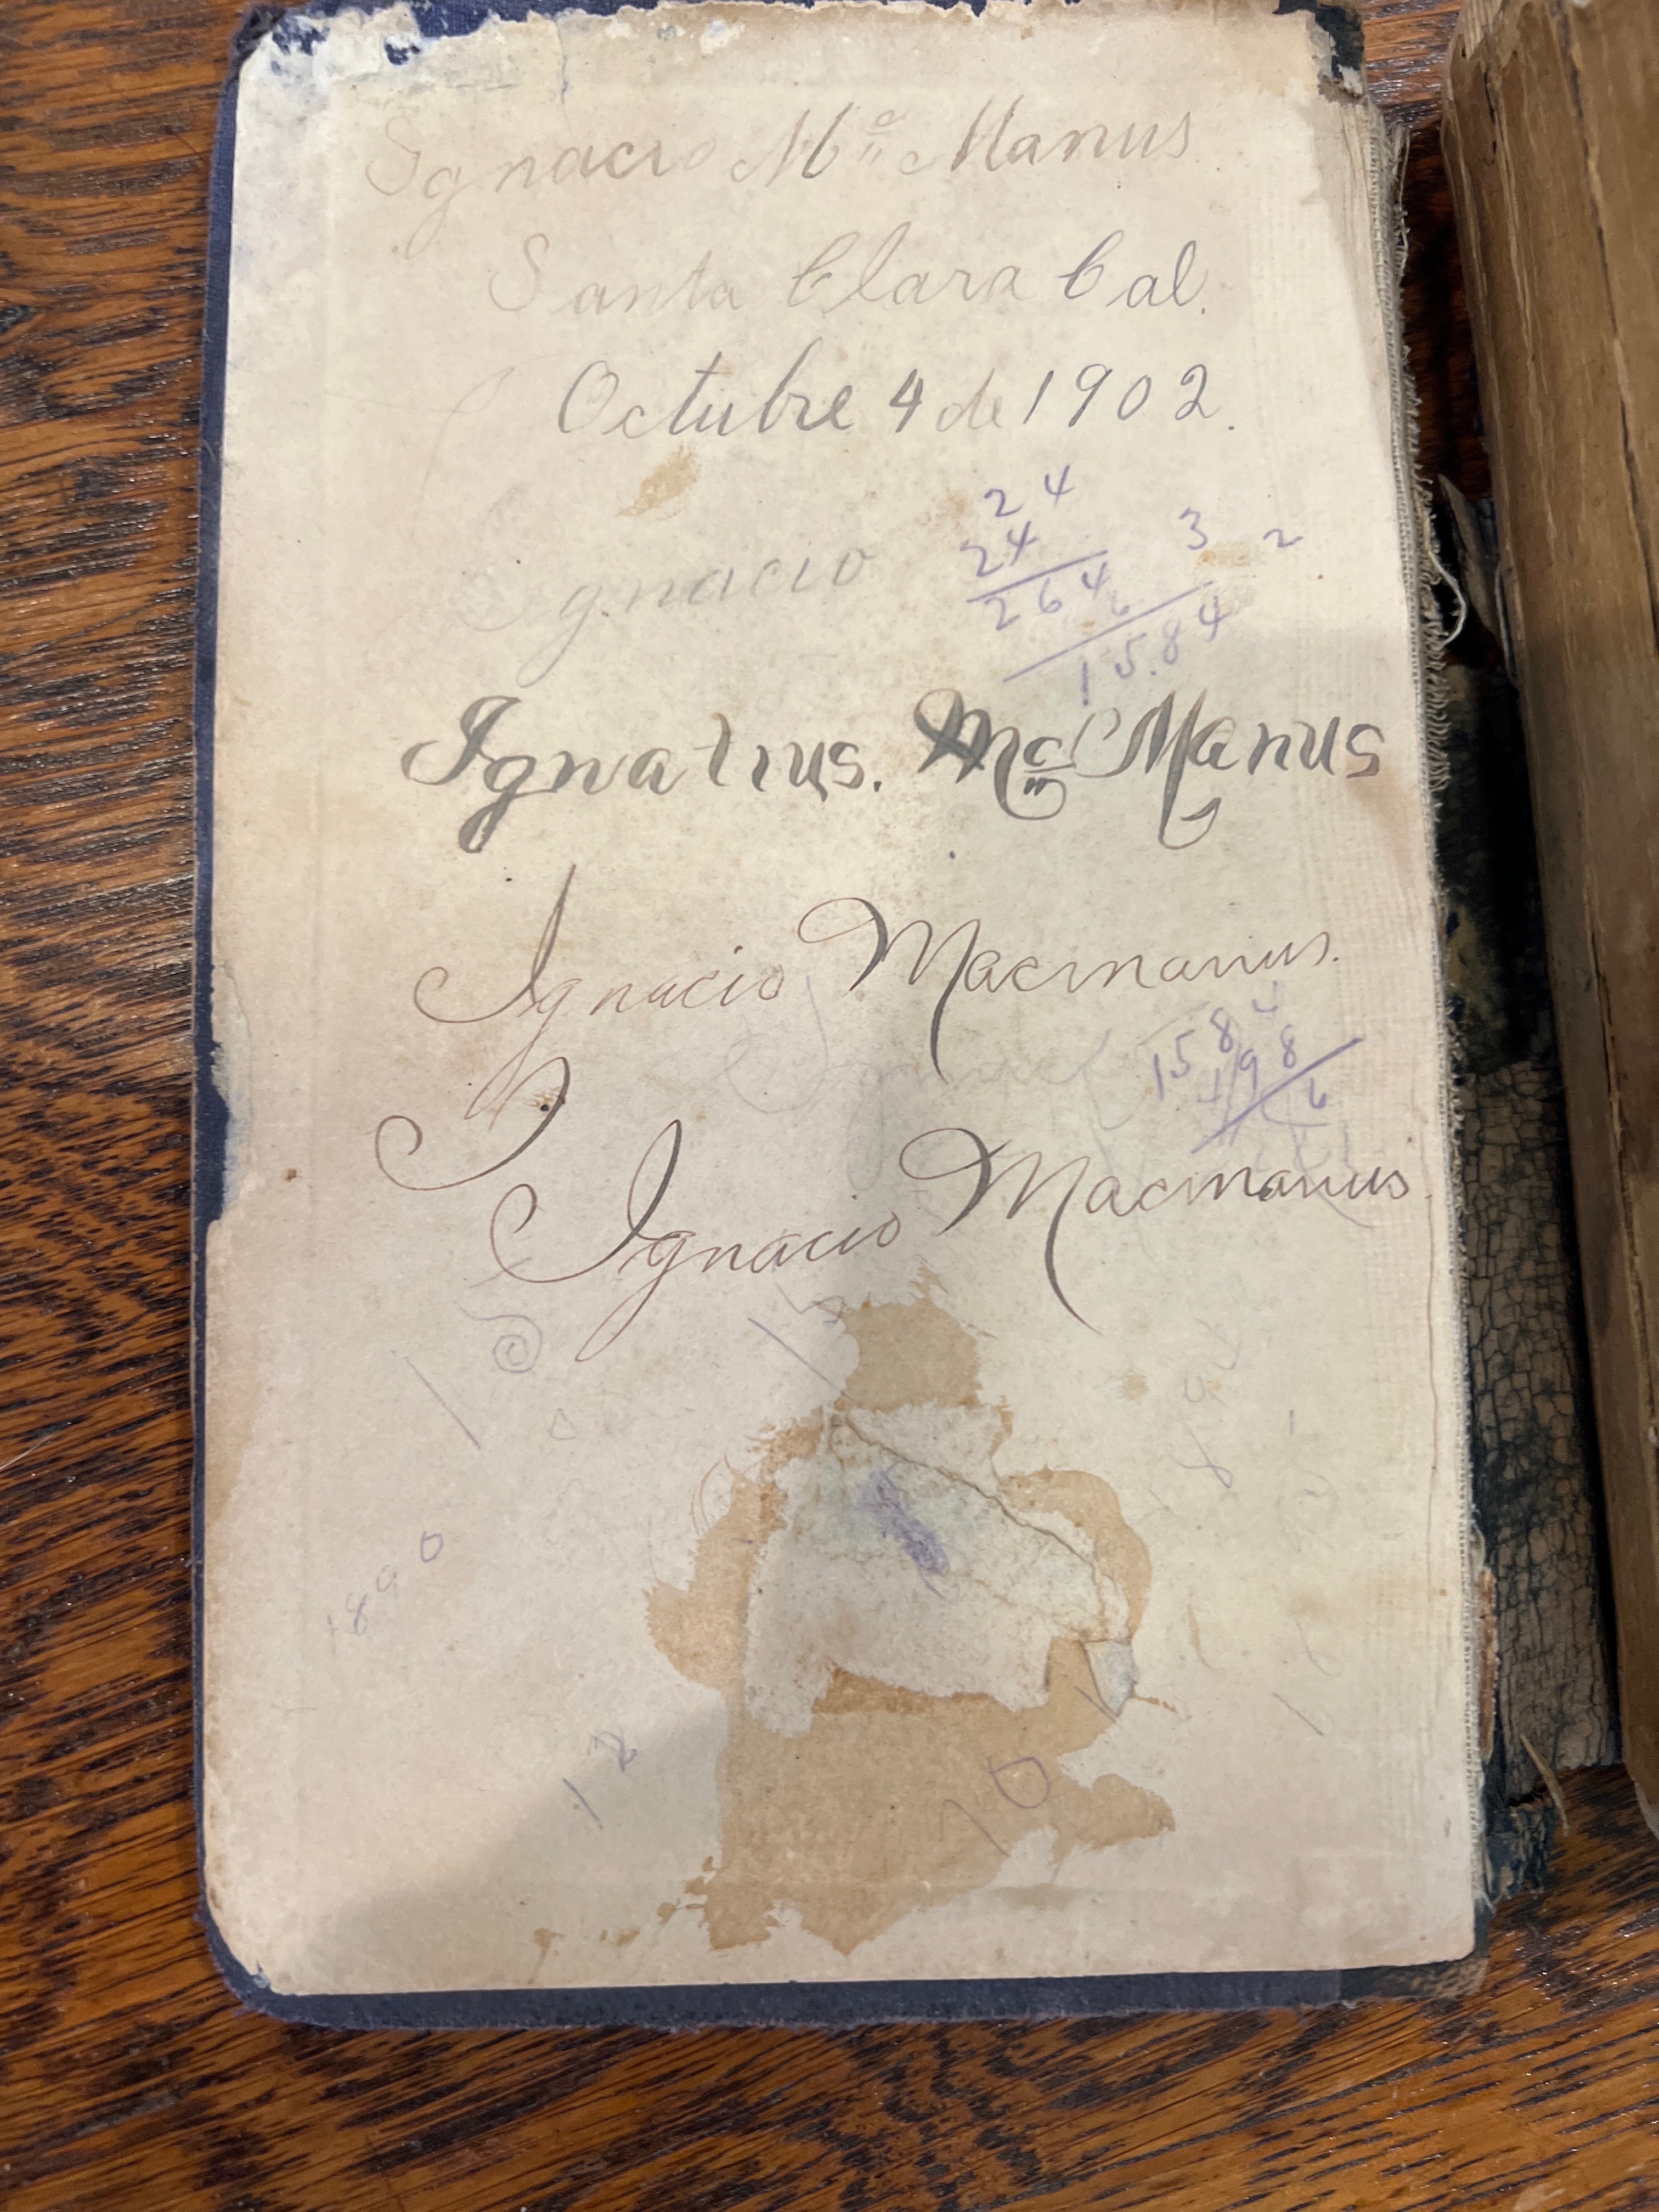 Ignacio Mc Manus
Santa Clara Cal.
Octubre 4 de 1902.
24
24 3 2
Ignacio
264
6
1584
Ignatius. Mc Manus
Ignacio Macmanus.
1584
198
6
Ignacio Macmanus.
1890
12
10